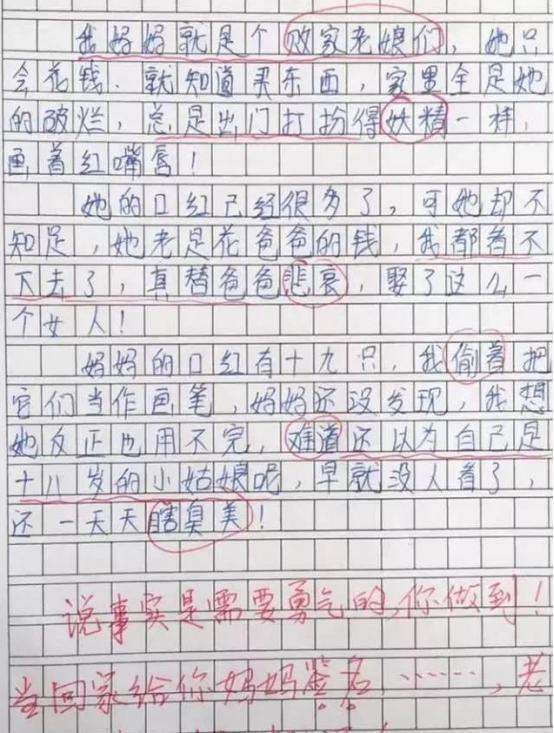 我妈妈就是个败家老娘们，她只
会花钱、就知道买东西，家里全是她
的破烂，总是出门打扮得妖精一样，
画着红嘴唇！
她的口红已经很多了，可她却不
知足，她老是花爸爸的钱，我都看不
下去了，真替爸爸悲哀，娶了这么一
个女人！
妈妈的口红有十九只，我偷着把
它们当作画笔，妈妈还没发现，我想
她反正也用不完，难道还以为自己是
十八岁的小姑娘呢，早就没人看了，
还一天天瞎臭美！
说事实是需要勇气的，你做到！
当回家给你妈妈签名，……，老